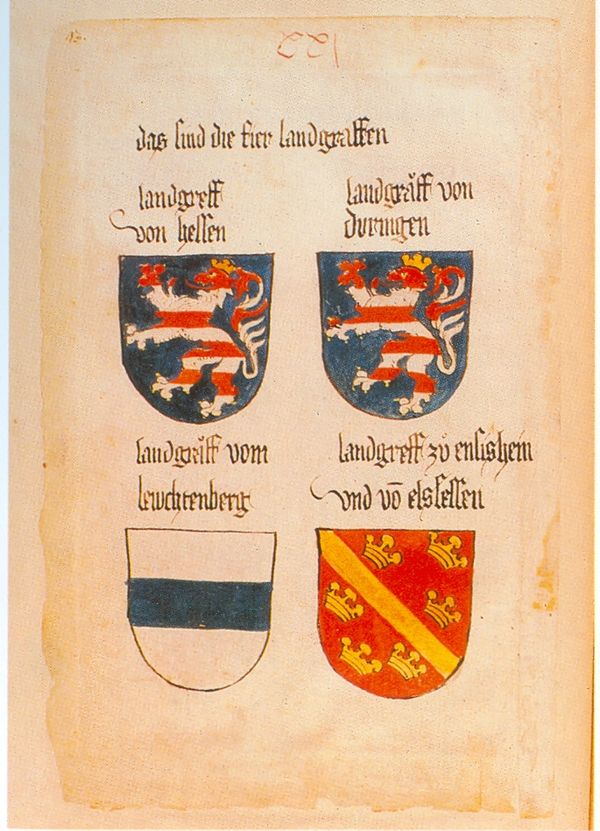 das sind die fier landgraffen
landgreff
von hessen
landgräff von
dvringen
landgräff vom
lewchtenberg
landgreff zů ensishein
vnd vō elssessen